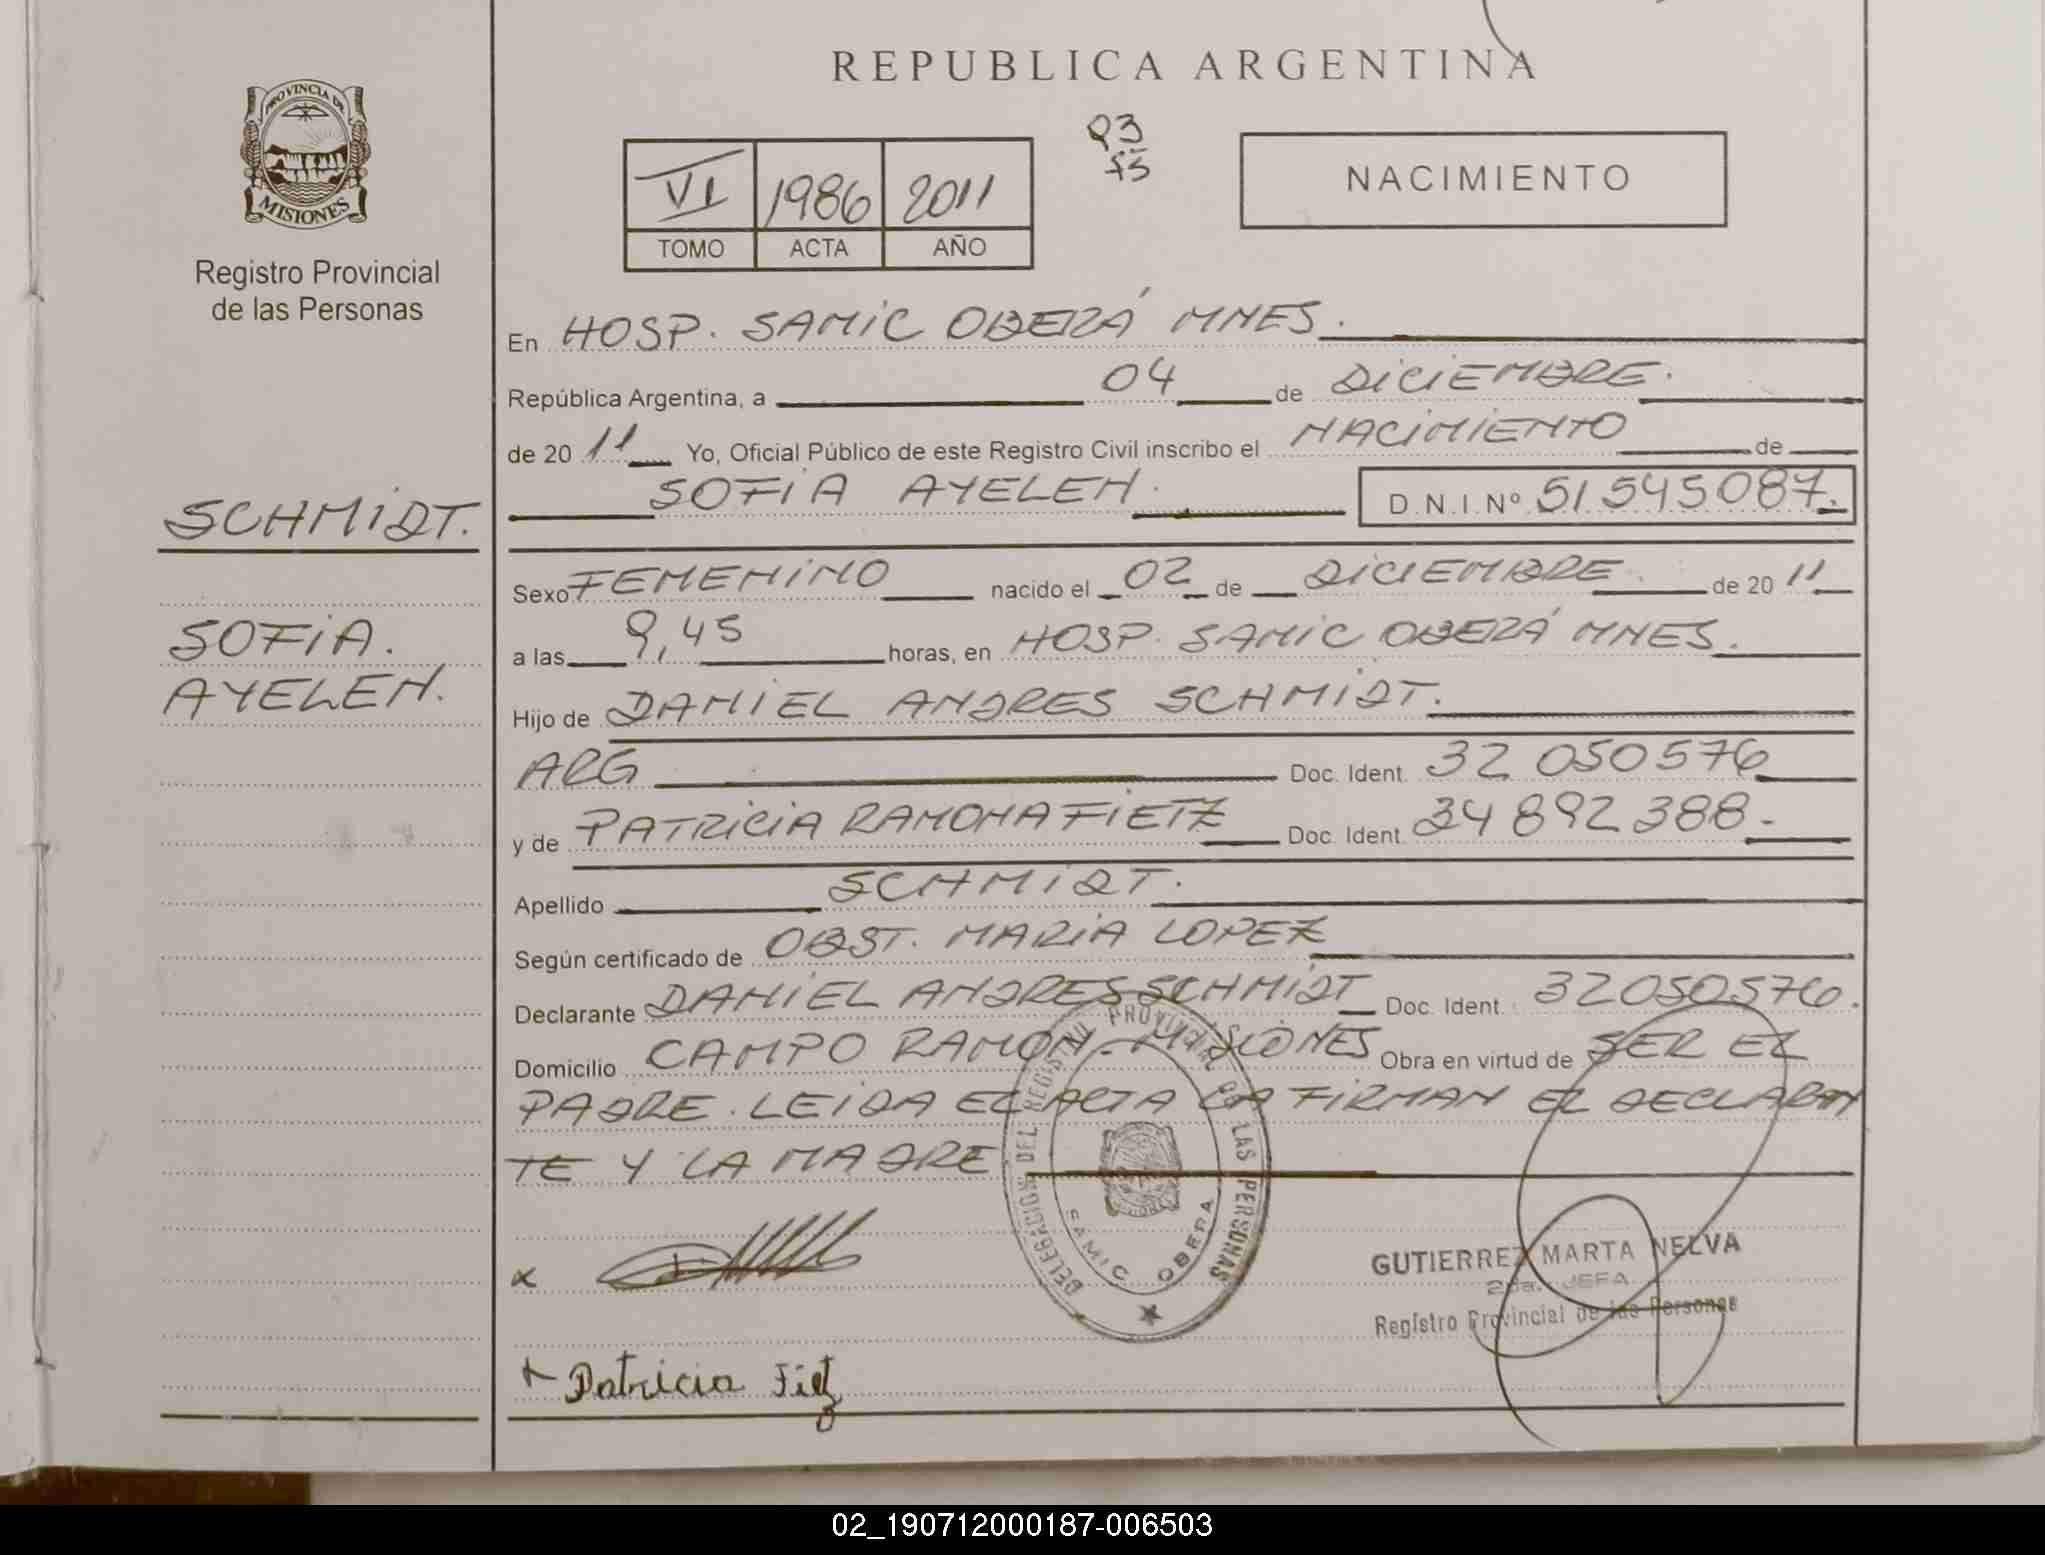 REPUBLICA ARGENTINA
PROVINCIA DE
MISIONES
Registro Provincial
de las Personas
VI 1986 2011
TOMO ACTA AÑO
NACIMIENTO
En HOSP. SAMIC OBERÁ MNES.
República Argentina, a 04 de DICIEMBRE.
de 20 11 Yo, Oficial Público de este Registro Civil inscribo el NACIMIENTO de
SOFIA AYELEN. D.N.I.Nº 51.545.087.
SCHMIDT.
Sexo FEMENINO nacido el 02 de DICIEMBRE de 20 11
a las 9,45 horas, en HOSP. SAMIC OBERÁ MNES.
SOFIA.
AYELEN.
Hijo de DANIEL ANDRES SCHMIDT.
ARG Doc. Ident. 32 050576
y de PATRICIA RAMONA FIETZ Doc. Ident. 34 892 388.-
Apellido SCHMIDT.
Según certificado de OBST. MARIA LOPEZ
Declarante DANIEL ANDRES SCHMIDT Doc. Ident. 32050576.
Domicilio CAMPO RAMON - MISIONES Obra en virtud de SER EL
PADRE. LEIDA EL ACTA LA FIRMAN EL DECLARAN
TE Y LA MADRE
DELEGACION DEL REGISTRO PROVINCIAL DE LAS PERSONAS
SAMIC OBERA
GUTIERREZ MARTA NELVA
2da. JEFA
Registro Provincial de las Personas
x
Patricia Fietz
02_190712000187-006503